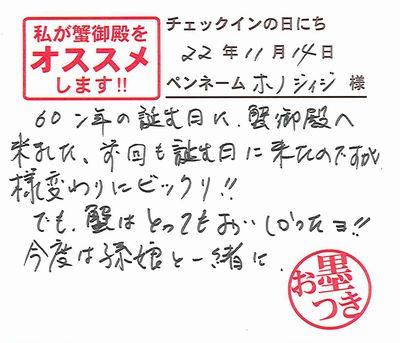 私が蟹御殿を
オススメ
します!!
チェックインの日にち
22年11月14日
ペンネーム ホノジィジ 様
60ン年の誕生日に、蟹御殿へ
来ました、前回も誕生日に来たのですが
様変わりにビックリ!!
でも、蟹はとってもおいしかったヨ!!
今度は孫娘と一緒に、
お墨つき